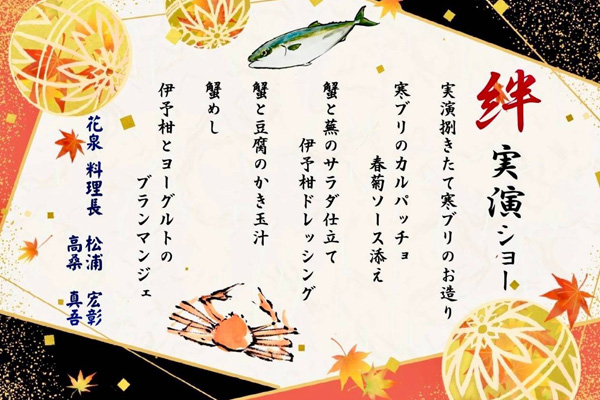 絆 実演ショー
実演捌きたて寒ブリのお造り
寒ブリのカルパッチョ
春菊ソース添え
蟹と蕪のサラダ仕立て
伊予柑ドレッシング
蟹と豆腐のかき玉汁
蟹めし
伊予柑とヨーグルトの
ブランマンジェ
花泉 料理長 松浦 宏彰
高桑 真吾